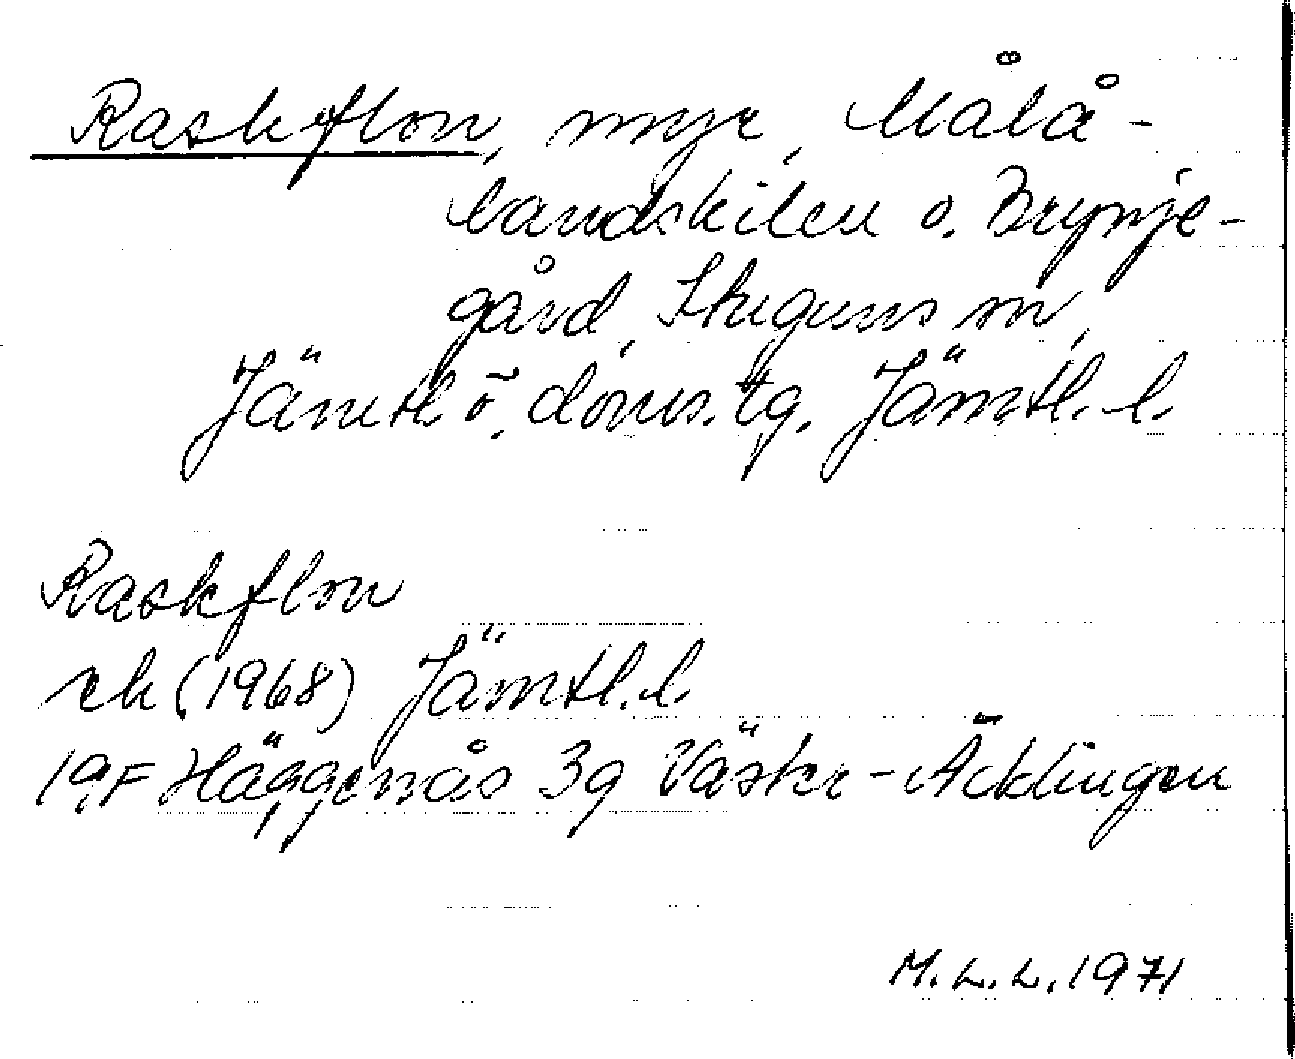 Raskflon, myr, Målå-
landskilen o. Brynje-
gård, Stuguns sn,
Jämtl ö. doms. tg. Jämtl. l.
Raskflon
ek (1968) Jämtl. l.
19F Häggenås 3g Väster-Acklingen
M. L. L. 1971